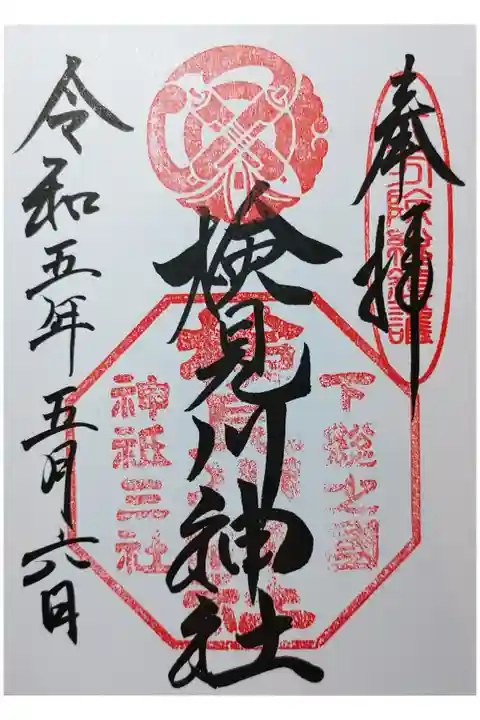 奉拝
下総之國
検見川神社
神祇三社
令和五年五月六日